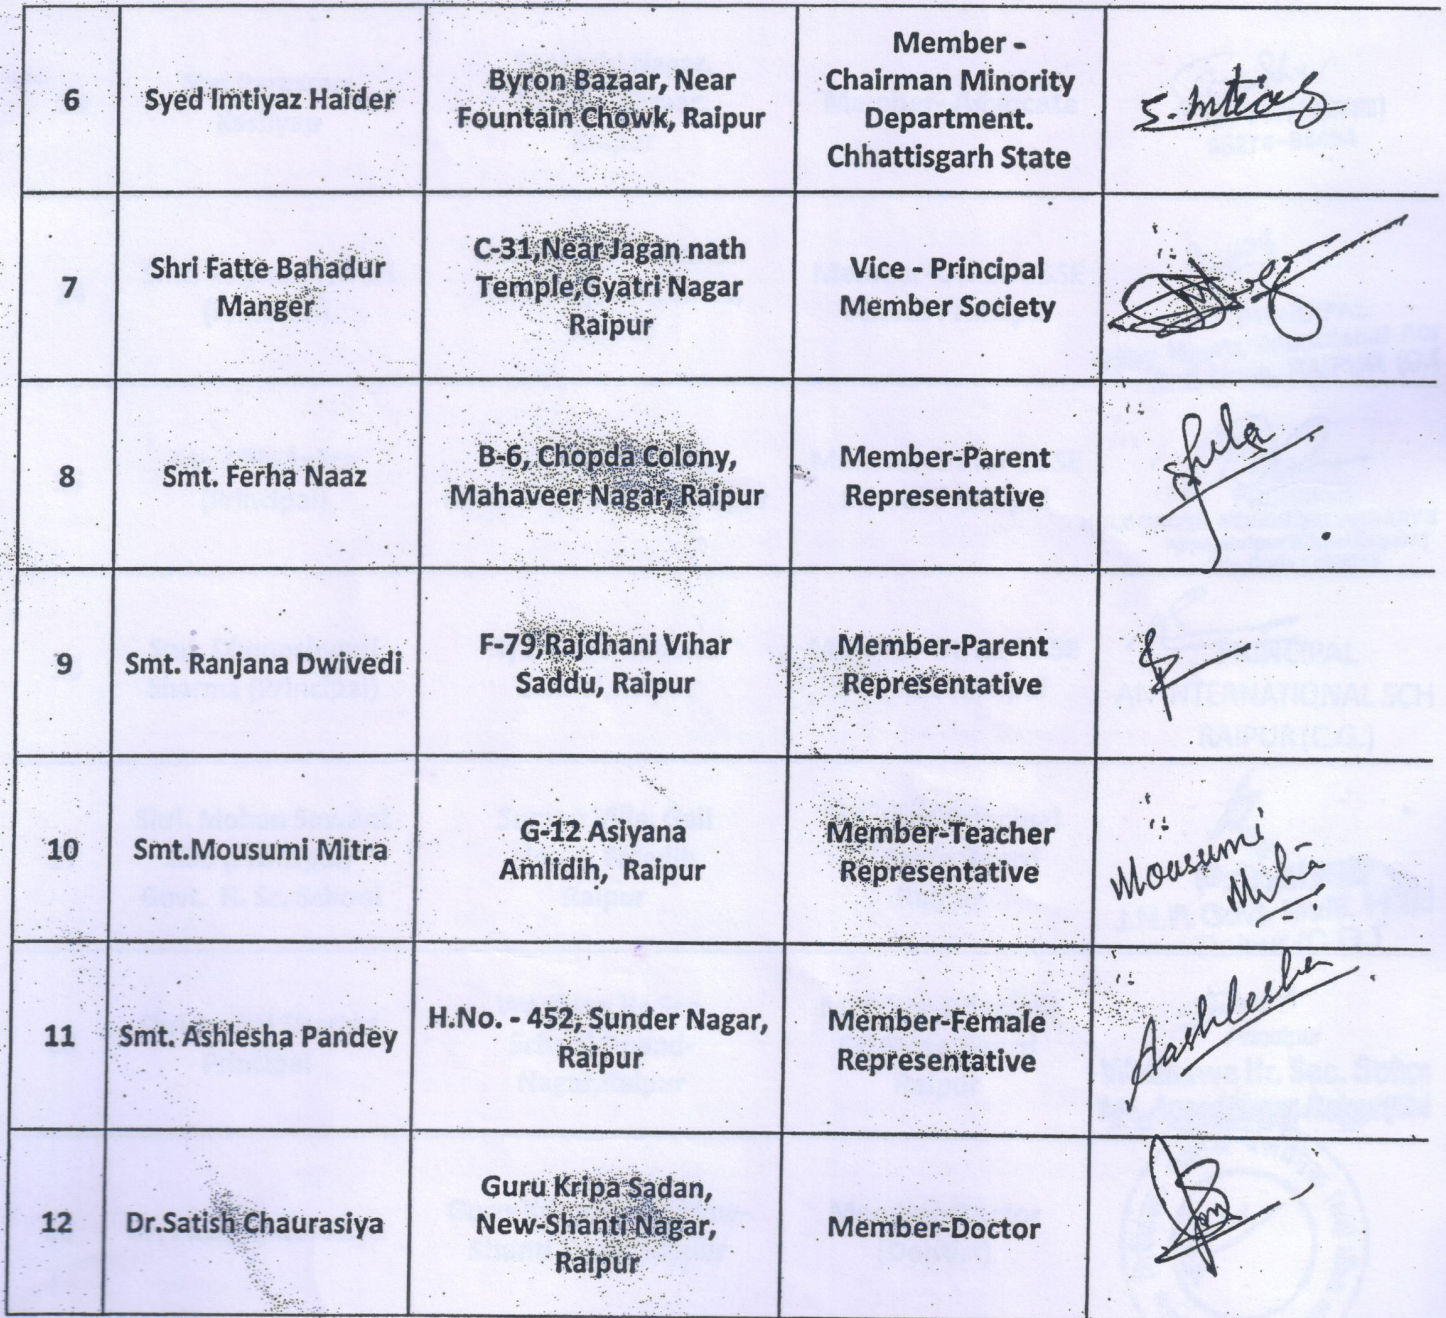 6
Syed Imtiyaz Haider
Byron Bazaar, Near
Fountain Chowk, Raipur
Member -
Chairman Minority
Department.
Chhattisgarh State
S. Imtiaz
7
Shri Fatte Bahadur
Manger
C-31,Near Jagannath
Temple,Gyatri Nagar
Raipur
Vice - Principal
Member Society
8
Smt. Ferha Naaz
B-6, Chopda Colony,
Mahaveer Nagar, Raipur
Member-Parent
Representative
9
Smt. Ranjana Dwivedi
F-79,Rajdhani Vihar
Saddu, Raipur
Member-Parent
Representative
10
Smt.Mousumi Mitra
G-12 Asiyana
Amlidih, Raipur
Member-Teacher
Representative
Mousumi
11
Smt. Ashlesha Pandey
H.No. - 452, Sunder Nagar,
Raipur
Member-Female
Representative
Aashleesha
12
Dr.Satish Chaurasiya
Guru Kripa Sadan,
New-Shanti Nagar,
Raipur
Member-Doctor